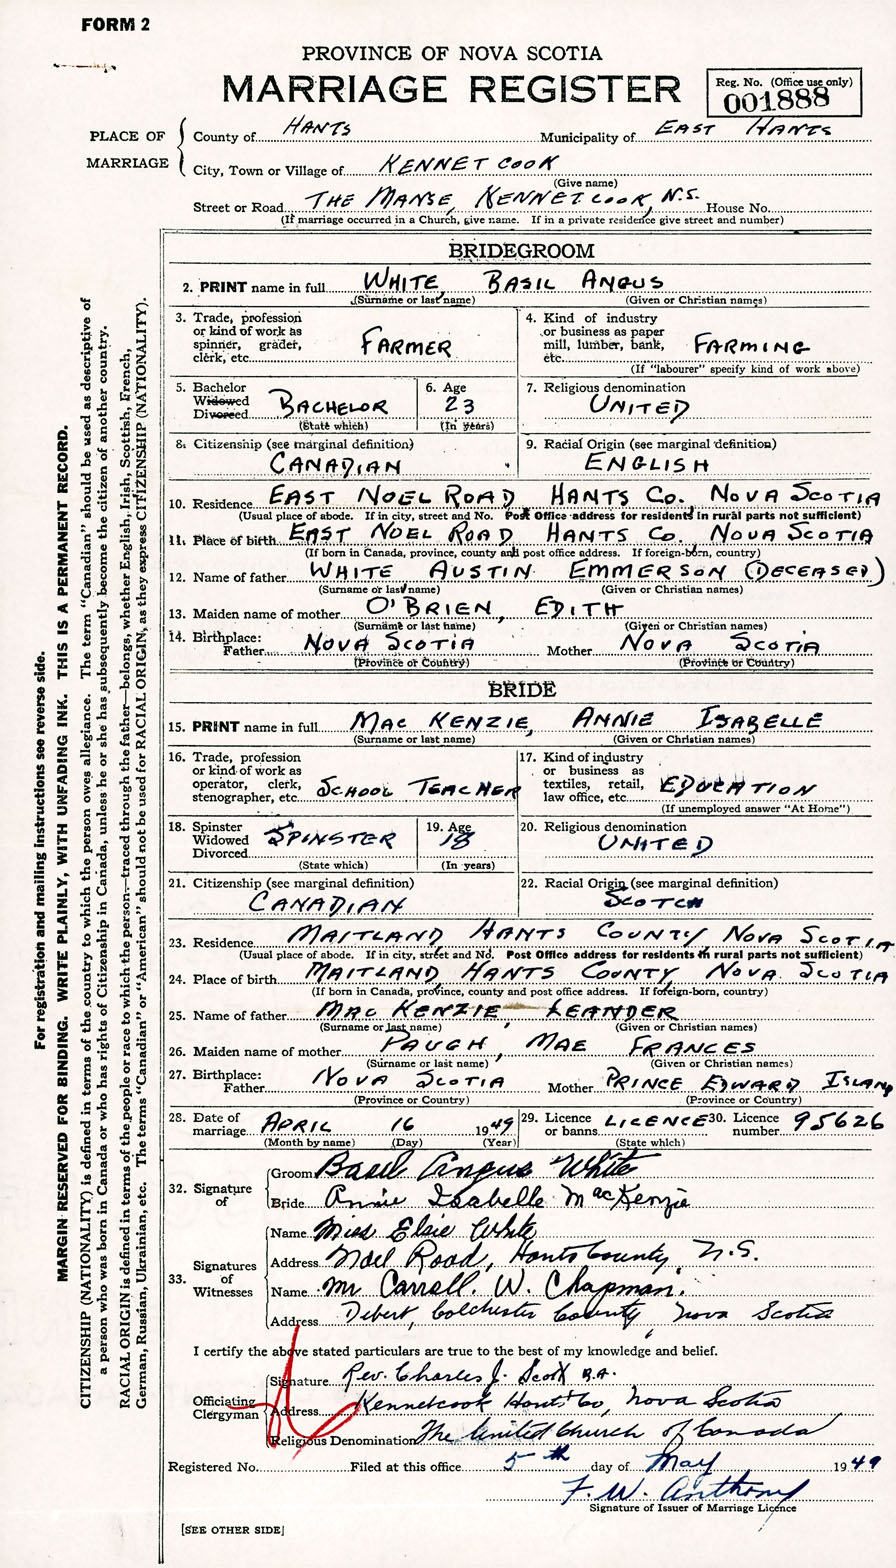 FORM 2
PROVINCE OF NOVA SCOTIA
MARRIAGE REGISTER
Reg. No. (Office use only)
001888
PLACE OF MARRIAGE
County of HANTS Municipality of EAST HANTS
City, Town or Village of KENNETCOOK
(Give name)
Street or Road THE MANSE, KENNETCOOK, N.S. House No.
(If marriage occurred in a Church, give name. If in a private residence give street and number)
BRIDEGROOM
2. PRINT name in full WHITE, BASIL ANGUS
(Surname or last name) (Given or Christian names)
3. Trade, profession
or kind of work as
spinner, grader,
clerk, etc. FARMER
4. Kind of industry
or business as paper
mill, lumber, bank,
etc. FARMING
(If "labourer" specify kind of work above)
5. Bachelor
Widowed
Divorced BACHELOR
(State which)
6. Age
23
(In years)
7. Religious denomination
UNITED
8. Citizenship (see marginal definition)
CANADIAN
9. Racial Origin (see marginal definition)
ENGLISH
10. Residence EAST NOEL ROAD HANTS CO., NOVA SCOTIA
(Usual place of abode. If in city, street and No. Post Office address for residents in rural parts not sufficient)
11. Place of birth EAST NOEL ROAD HANTS CO. NOVA SCOTIA
(If born in Canada, province, county and post office address. If foreign-born, country)
12. Name of father WHITE AUSTIN EMMERSON (DECEASED)
(Surname or last name) (Given or Christian names)
13. Maiden name of mother O'BRIEN, EDITH
(Surname or last name) (Given or Christian names)
14. Birthplace:
Father NOVA SCOTIA Mother NOVA SCOTIA
(Province or Country) (Province or Country)
BRIDE
15. PRINT name in full MAC KENZIE, ANNIE ISABELLE
(Surname or last name) (Given or Christian names)
16. Trade, profession
or kind of work as
operator, clerk,
stenographer, etc. SCHOOL TEACHER
17. Kind of industry
or business as
textiles, retail,
law office, etc. EDUCATION
(If unemployed answer "At Home")
18. Spinster
Widowed
Divorced SPINSTER
(State which)
19. Age
18
(In years)
20. Religious denomination
UNITED
21. Citizenship (see marginal definition)
CANADIAN
22. Racial Origin (see marginal definition)
SCOTCH
23. Residence MAITLAND, HANTS COUNTY, NOVA SCOTIA
(Usual place of abode. If in city, street and No. Post Office address for residents in rural parts not sufficient)
24. Place of birth MAITLAND, HANTS COUNTY, NOVA SCOTIA
(If born in Canada, province, county and post office address. If foreign-born, country)
25. Name of father MAC KENZIE, LEANDER
(Surname or last name) (Given or Christian names)
26. Maiden name of mother PAUGH, MAE FRANCES
(Surname or last name) (Given or Christian names)
27. Birthplace:
Father NOVA SCOTIA Mother PRINCE EDWARD ISLAND
(Province or Country) (Province or Country)
28. Date of
marriage APRIL 16 1949
(Month by name) (Day) (Year)
29. Licence
or banns LICENCE
(State which)
30. Licence
number 95626
32. Signature of
Groom Basil Angus White
Bride Annie Isabelle MacKenzie
33. Signatures of Witnesses
Name Miss Elsie White
Address Noel Road, Hants County, N.S.
Name Mr Carroll. W. Chapman.
Address Debert, Colchester County, Nova Scotia
I certify the above stated particulars are true to the best of my knowledge and belief.
Officiating Clergyman
Signature Rev. Charles J. Scott B.A.
Address Kennetcook Hants Co, Nova Scotia
Religious Denomination The United Church of Canada
Registered No. Filed at this office 5th day of May 1949
F. W. Anthony
Signature of Issuer of Marriage Licence
[SEE OTHER SIDE]
For registration and mailing instructions see reverse side.
MARGIN RESERVED FOR BINDING. WRITE PLAINLY, WITH UNFADING INK. THIS IS A PERMANENT RECORD.
CITIZENSHIP (NATIONALITY) is defined in terms of the country to which the person owes allegiance. The term "Canadian" should be used as descriptive of
a person who was born in Canada or who has rights of Citizenship in Canada, unless he or she has subsequently become the citizen of another country.
RACIAL ORIGIN is defined in terms of the people or race to which the person—traced through the father—belongs, whether English, Irish, Scottish, French,
German, Russian, Ukrainian, etc. The terms "Canadian" or "American" should not be used for RACIAL ORIGIN, as they express CITIZENSHIP (NATIONALITY).